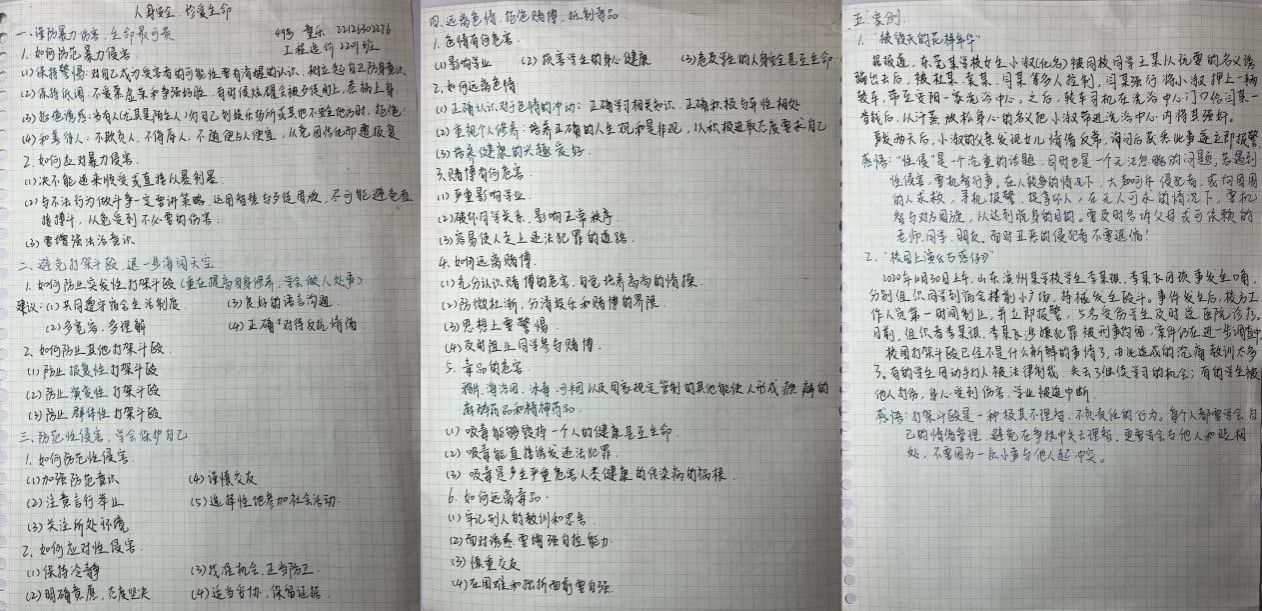 人身安全 珍爱生命
一、谨防暴力伤害,生命最可贵 49号 童乐 22126302276
1.如何防范暴力侵害 工程造价2201班
(1)保持警惕:对自己成为受害者的可能性要有清醒的认识,树立起自卫防身意识
(2)保持低调:不要慕虚荣争强好胜,有时候炫耀会被歹徒盯上,惹祸上身.
(3)拒绝诱惑:当有人(尤其是陌生人)约自己到娱乐场所或其他不安全地方时,拒绝!
(4)和善待人:不欺负人,不得罪人,不随便占人便宜,从免因伤他却遭报复
2.如何应对暴力侵害.
(1)决不能逆来顺受或直接以暴制暴
(2)与不法行为做斗争一定要讲策略,运用智慧与歹徒周旋,尽可能避免直
接搏斗,从免受到不必要的伤害.
(3)要增强法治意识
二、避免打架斗殴,退一步海阔天空
1.如何防止突发性打架斗殴(重在提高自身修养,学会做人处事)
建议:(1)共同遵守宿舍生活制度 (3)良好的语言沟通.
(2)多宽容,多理解 (4)正确对待反抗情绪
2.如何防止其他打架斗殴.
(1)防止报复性打架斗殴
(2)防止演变性打架斗殴
(3)防止群体性打架斗殴
三、防范性侵害,学会保护自己
1.如何防范性侵害.
(1)加强防范意识 (4)谨慎交友
(2)注意言行举止 (5)选择性地参加社会活动.
(3)关注所处环境
2.如何应对性侵害.
(1)保持冷静 (3)找准机会,正当防卫.
(2)明确意愿,态度坚决 (4)适当妥协,保留证据.
四.远离色情,拒绝赌博,抵制毒品.
1.色情有何危害.
(1)影响学业 (2)损害学生的身心健康 (3)危及学生的人身安全甚至生命
2.如何远离色情
(1)正确认识对于色情的冲动:正确学习相关知识,正确积极与异性相处
(2)重视个人修养:培养正确的人生观和是非观,以积极进取态度要求自己
(3)培养健康的兴趣爱好.
3.赌博有何危害.
(1)严重影响学业.
(2)破坏同学关系,影响正常秩序.
(3)容易使人走上违法犯罪的道路.
4.如何远离赌博.
(1)充分认识赌博的危害,自觉培养高尚的情操.
(2)防微杜渐,分清娱乐和赌博的界限.
(3)思想上要警惕.
(4)及时阻止同学参与赌博.
5.毒品的危害.
鸦片,海洛因,冰毒,可卡因以及国家规定管制的其他能使人形成瘾癖的
麻醉药品和精神药品.
(1)吸毒能够毁掉一个人的健康甚至生命.
(2)吸毒能直接诱发违法犯罪.
(3)吸毒是产生严重危害人类健康的传染病的祸根.
6.如何远离毒品.
(1)牢记别人的教训和忠告.
(2)面对诱惑要增强自控能力.
(3)慎重交友
(4)在困难和挫折面前要自强.
五.案例.
1."被毁灭的花样年华"
据报道,东莞某学校女生小淑(化名)被同校同学王某从玩耍的名义诱
骗出去后,被杜某、袁某、闫某等多人控制,闫某强行将小淑押上一辆
轿车,带至安阳一家洗浴中心.之后,轿车司机在洗浴中心门口给闫某一
沓钱后,从汗蒸放松身心的名义把小淑带进洗浴中心内将其强奸.
事发两天后,小淑的父亲发现女儿情绪反常,询问后获悉此事遂立即报警.
感悟:"性侵"是一个沉重的话题,同时也是一个无法忽略的问题,若遇到
性侵害,要机智行事,在人较多的情况下,大声呵斥侵犯者,或向周围
的人求救,寻机报警,捉拿坏人,在无人可求的情况下,要机
智与对方周旋,从达到脱身的目的。要及时告诉父母或可依赖的
老师、同学、朋友.面对丑恶的侵犯者不要退缩!
2."校园上演《古惑仔》"
2020年4月30日上午,山东滨州某学校学生李某祺,李某飞因琐事发生口角,
分别组织同学到宿舍楼前小广场,持械发生殴斗。事件发生后,校方工
作人员第一时间制止,并立即报警,5名受伤学生及时送医院诊疗。
目前,组织者李某祺、李某飞涉嫌犯罪被刑事拘留,案件仍在进一步调查中.
校园打架斗殴已经不是什么新鲜的事情了,由此造成的沉痛教训太多
了。有的学生因动手打人被法律制裁,失去了继续学习的机会;有的学生被
他人打伤,身心受到伤害,学业被迫中断.
感悟:打架斗殴是一种极其不理智、不负责任的行为。每个人都要学会自
己的情绪管理,避免在争执中失去理智,更要学会与他人和睦相
处,不要因为一点小事与他人起冲突。